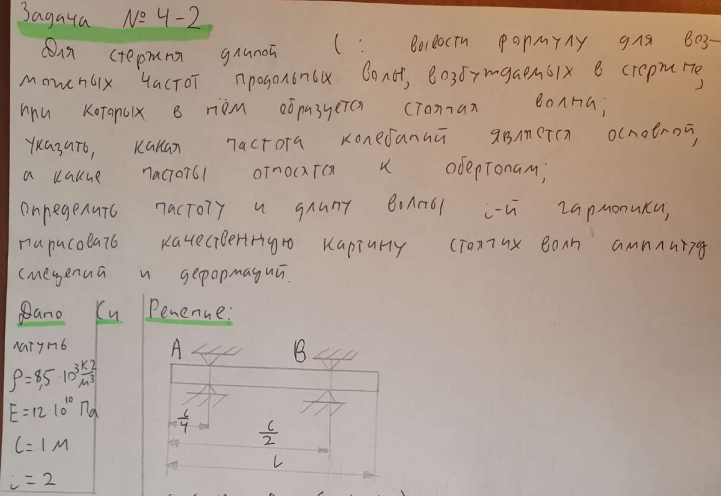 Задача № 4-2
Для стержня длиной l : вывести формулу для воз-
можных частот продольных волн, возбуждаемых в стержне,
при которых в нём образуется стоячая волна;
указать, какая частота колебаний является основной,
а какие частоты относятся к обертонам;
определить частоту и длину волны i-й гармоники;
нарисовать качественную картину стоячих волн амплитуд
смещений и деформаций.
Дано Си Решение:
латунь
ρ = 8,5 · 10³ кг/м³
E = 12 · 10¹⁰ Па
l = 1 м
i = 2
A B
l/4
l/2
l